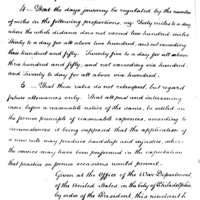 4 — That the days journey be regulated by the number
of miles in the following proportions, viz: Forty miles to a day
where the whole distance does not exceed two hundred miles.
Thirty to a day for all above two hundred, and not exceeding
three hundred and fifty. Twenty five to a day for all above
three hundred and fifty, and not exceeding six hundred.
and Twenty to day for all above six hundred.
5 — That these rules do not retrospect, but regard
future allowances only. That all past and intervening
cases, before a reasonable notice of the same, be settled on
the former principle of reasonable expences, according to
circumstances, it being supposed that the application of
a new rule may produce hardship and injustice, where
the service may have been performed in the expectation
that practice on former occasions would prevail.
Given at the Office of the War Department
of the United States, in the City of Philadelphia
by order of the President, this nineteenth